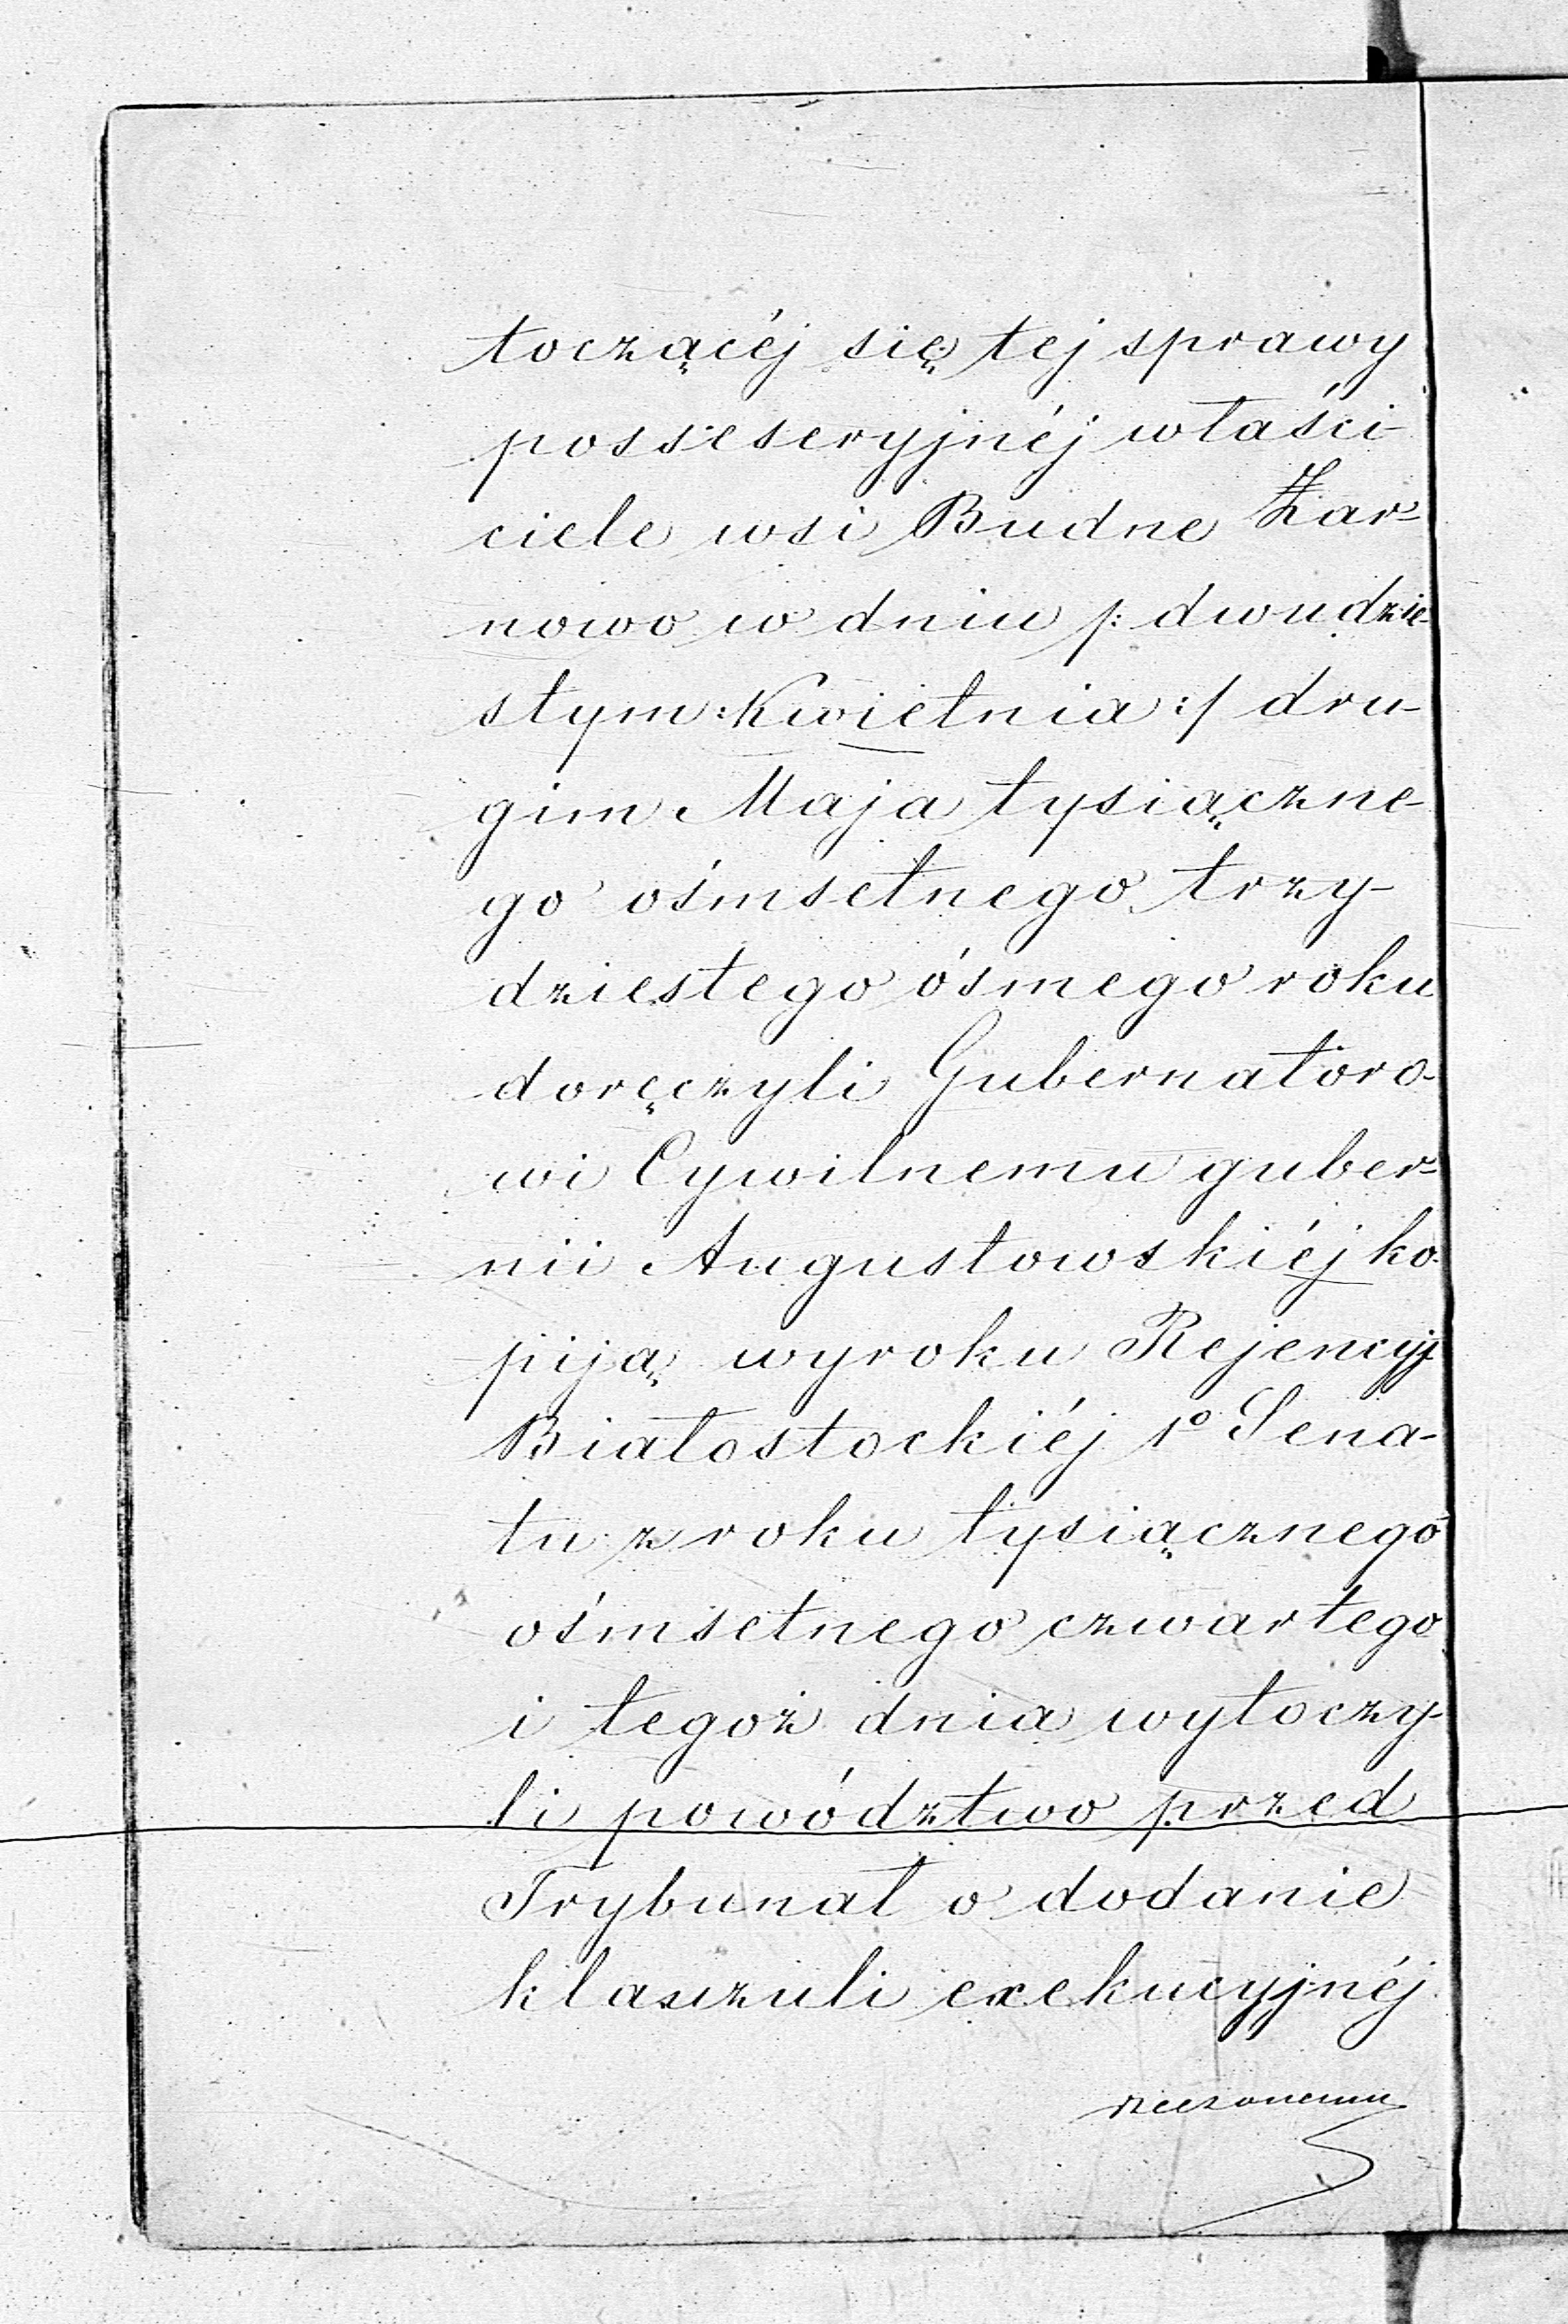 toczącéj się tej sprawy
posseseryjnéj właści-
ciele wsi Budne Żar-
nowo w dniu /: dwudzie-
stym Kwietnia :/ dru-
gim Maja tysiączne-
go ośmsetnego trzy-
dziestego ósmego roku
doręczyli Gubernatoro-
wi Cywilnemu guber-
nii Augustowskiéj ko-
piją wyroku Rejencyj
Białostockiéj 1º Sena-
tu z roku tysiącznego
ośmsetnego czwartego
i tegoż dnia wytoczy-
li powództwo przed
Trybunał o dodanie
klauzuli exekucyjnéj
rzeczonemu